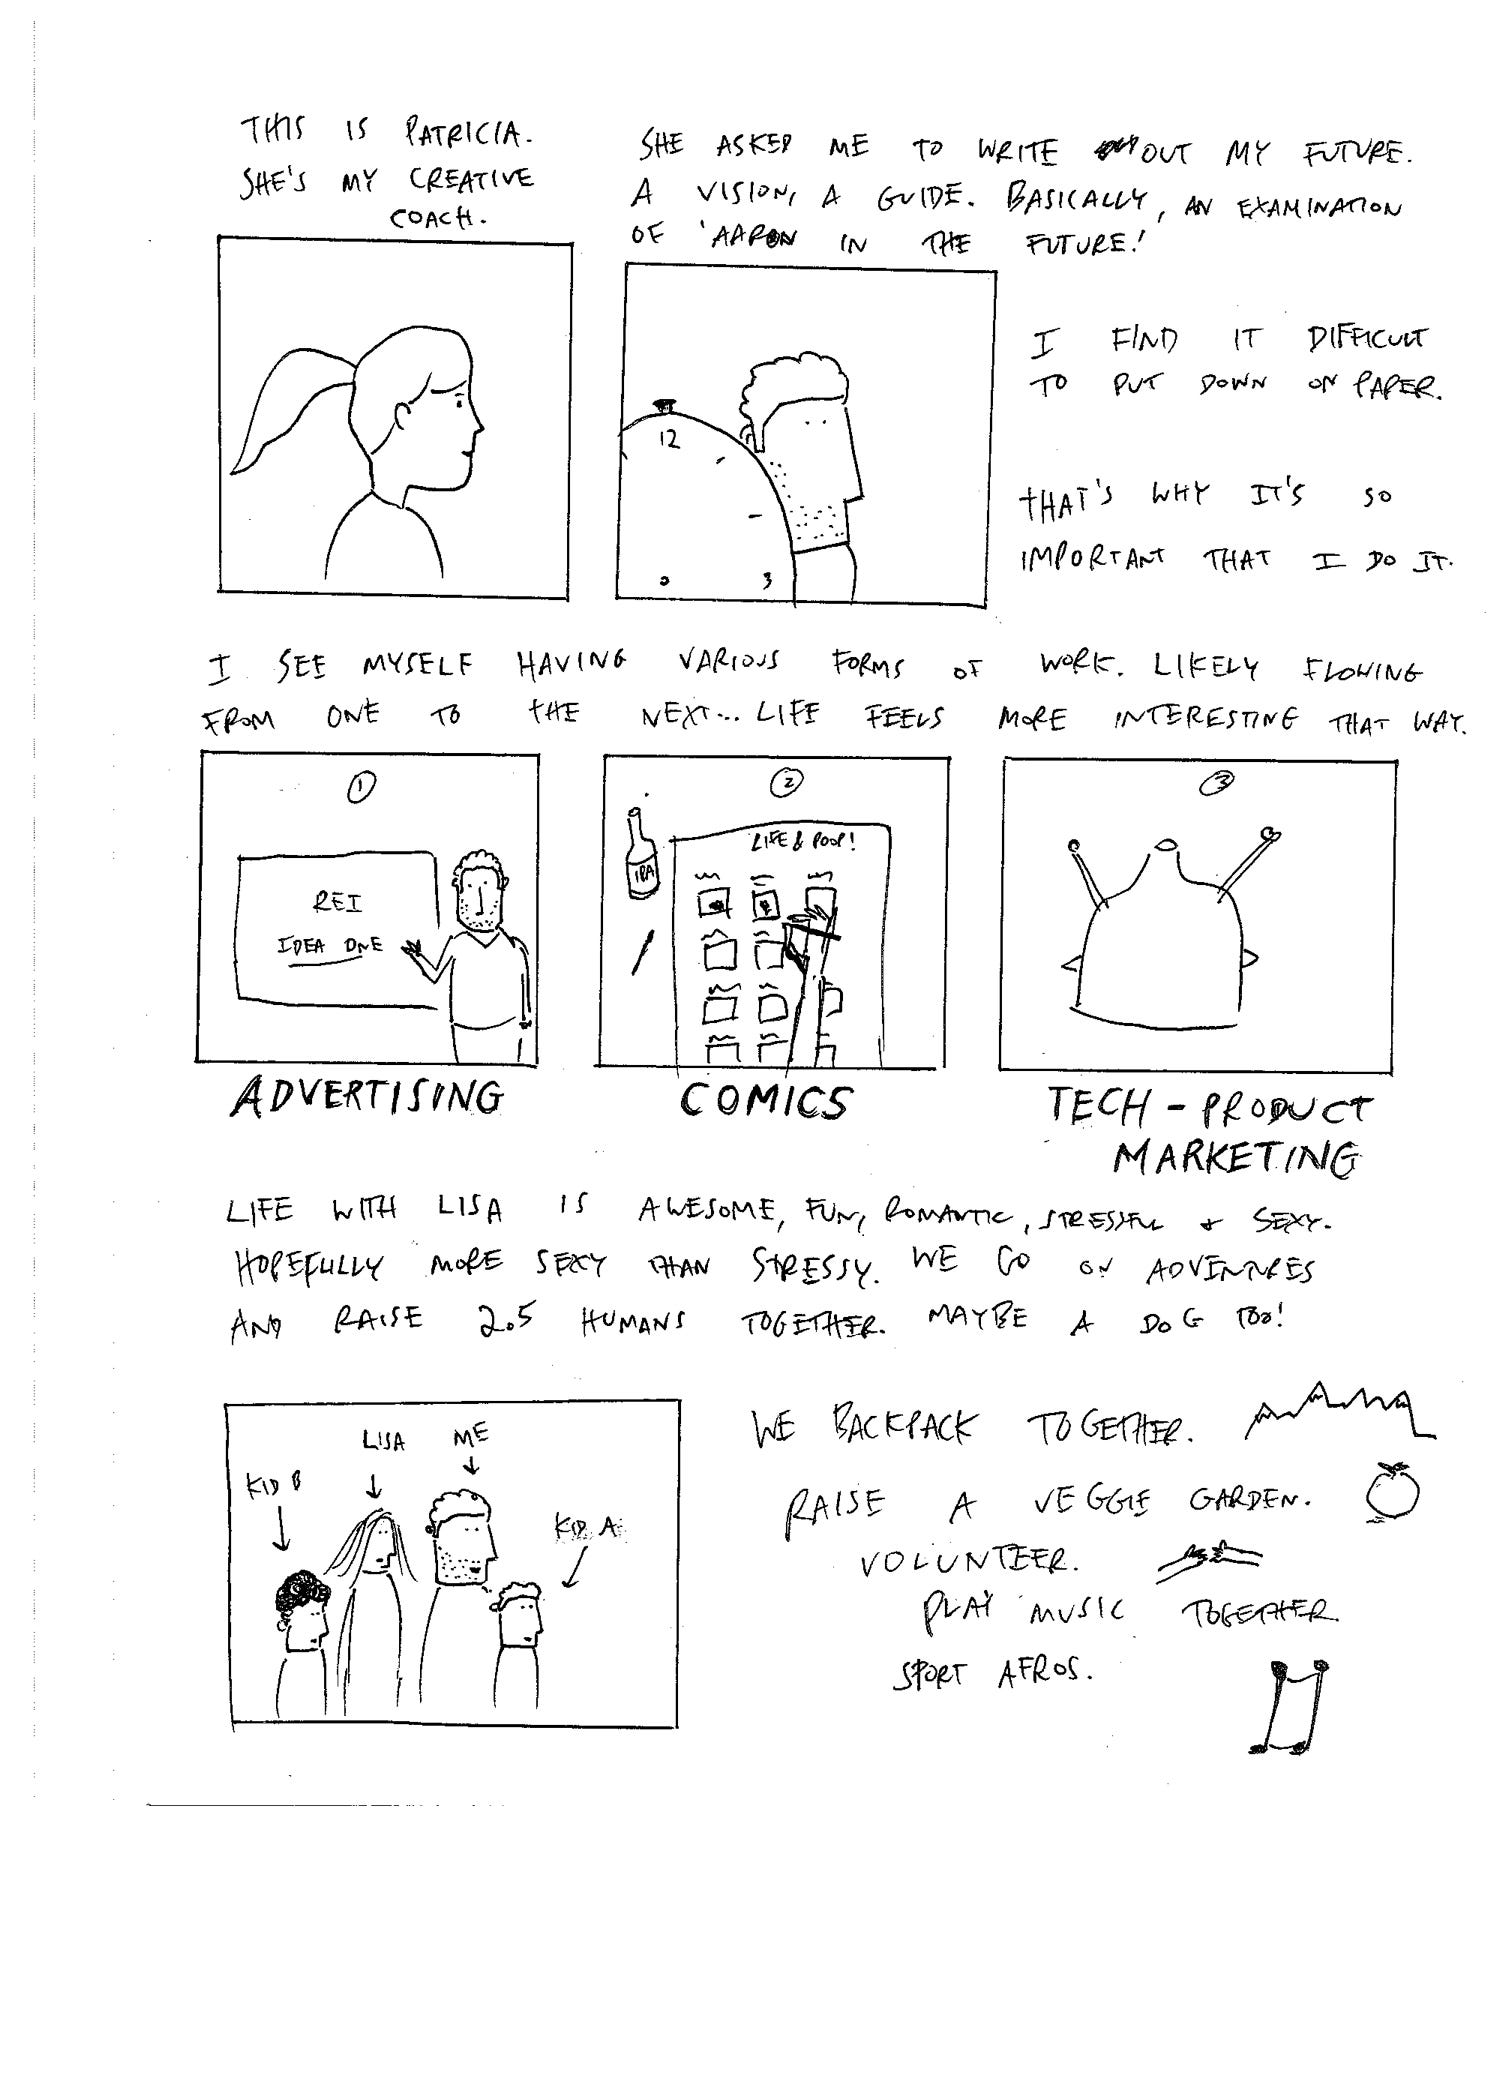 THIS IS PATRICIA.
SHE'S MY CREATIVE
COACH.
SHE ASKED ME TO WRITE OUT MY FUTURE.
A VISION, A GUIDE. BASICALLY, AN EXAMINATION
OF 'AARON IN THE FUTURE!'
12
3
I FIND IT DIFFICULT
TO PUT DOWN ON PAPER.
THAT'S WHY IT'S SO
IMPORTANT THAT I DO IT.
I SEE MYSELF HAVING VARIOUS FORMS OF WORK. LIKELY FLOWING
FROM ONE TO THE NEXT... LIFE FEELS MORE INTERESTING THAT WAY.
1
REI
IDEA ONE
ADVERTISING
2
IPA
LIFE & POOP!
COMICS
3
TECH - PRODUCT
MARKETING
LIFE WITH LISA IS AWESOME, FUN, ROMANTIC, STRESSFUL + SEXY.
HOPEFULLY MORE SEXY THAN STRESSY. WE GO ON ADVENTURES
AND RAISE 2.5 HUMANS TOGETHER. MAYBE A DOG TOO!
KID B
LISA
ME
KID A
WE BACKPACK TOGETHER.
RAISE A VEGGIE GARDEN.
VOLUNTEER.
PLAY MUSIC TOGETHER
SPORT AFROS.